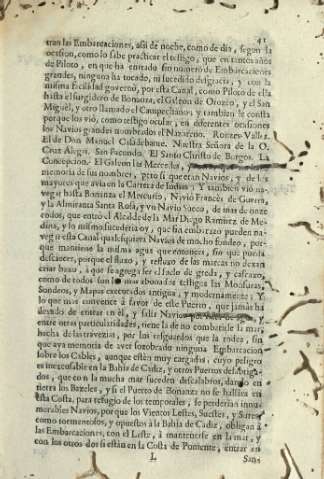 41
tran las Embarcaciones, assi de noche, como de dia, segun la
ocasion, como lo sabe practicar el testigo, que en tantos años
de Piloto, en que ha entrado sin numero de Embarcaciones
grandes, ninguna ha tocado, ni sucedido desgracia, y con la
misma facilidad governò, por esta Canal, como Piloto de ella
hasta el surgidero de Bonanza, el Galeon de Orozio, y el San
Miguèl, y otro llamado el Campechano; y tambien le consta
porque los viò, como testigo ocular; en diferentes ocasiones
los Navios grandes nombrados el Nazareno.
El de Don Manuel Casadebante. Nuestra Señora de la O.
Cruz Alegra. San Facundo. El Santo Christo de Burgos. La
Concepcion. El Galeon la Mercedes,
memoria de sus nombres, pero si que eran Navios, y de los
mayores que avia en la Carrera de Indias; Y tambien viò na-
vegar hasta Bonanza el Mercurio, Navio Francès de Guerra,
y la Almiranta Santa Rosa, y un Navio Sueco, de mar de onze
codos, que entrò el Alcalde de la Mar Diego Ramirez de Me-
dina, y lo mismo sucediera oy, que sin embarazo pueden na-
vegar esta Canal qualesquiera Navios de mucho fondeo, por-
que mantiene la misma agua que entonces, sin que pueda
descaecer, porque el fluxo, y refluxo de las mareas no dexan
criar bazo, à que se agrega ser el suelo de greda, y cascajo,
como de todos son los mas abonados testigos las Monsuras,
Sondeos, y Mapas executados antigua, y modernamente; Y
lo que mas convence à favor de este Puerto, que jamàs ha
dexado de entrar en èl, y salir Navio
entre otras particularidades, tiene la de no combatirle la mar,
hecha de las travezias, por los resguardos que la rodea, sin
que aya memoria de aver zozobrado ninguna Embarcacion
sobre los Cables, aunque estèn muy cargadas, cuyo peligro
es inexcusable en la Bahia de Cadiz, y otros Puertos desabriga-
dos, que con la mucha mar suceden descalabros, dando en
tierra los Bageles, y si el Puerto de Bonanza no se hallàra en
esta Costa, para refugio de los temporales, se perderian innu-
merables Navios, por que los Vientos Lestes, Suestes, y Sures
como tormentosos, y opuestos à la Bahia de Cadiz, obligan à
las Embarcaciones, con el Leste, à mantenerse en la mar, y
con los otros dos si estàn en la Costa de Poniente, entrar en
L San-